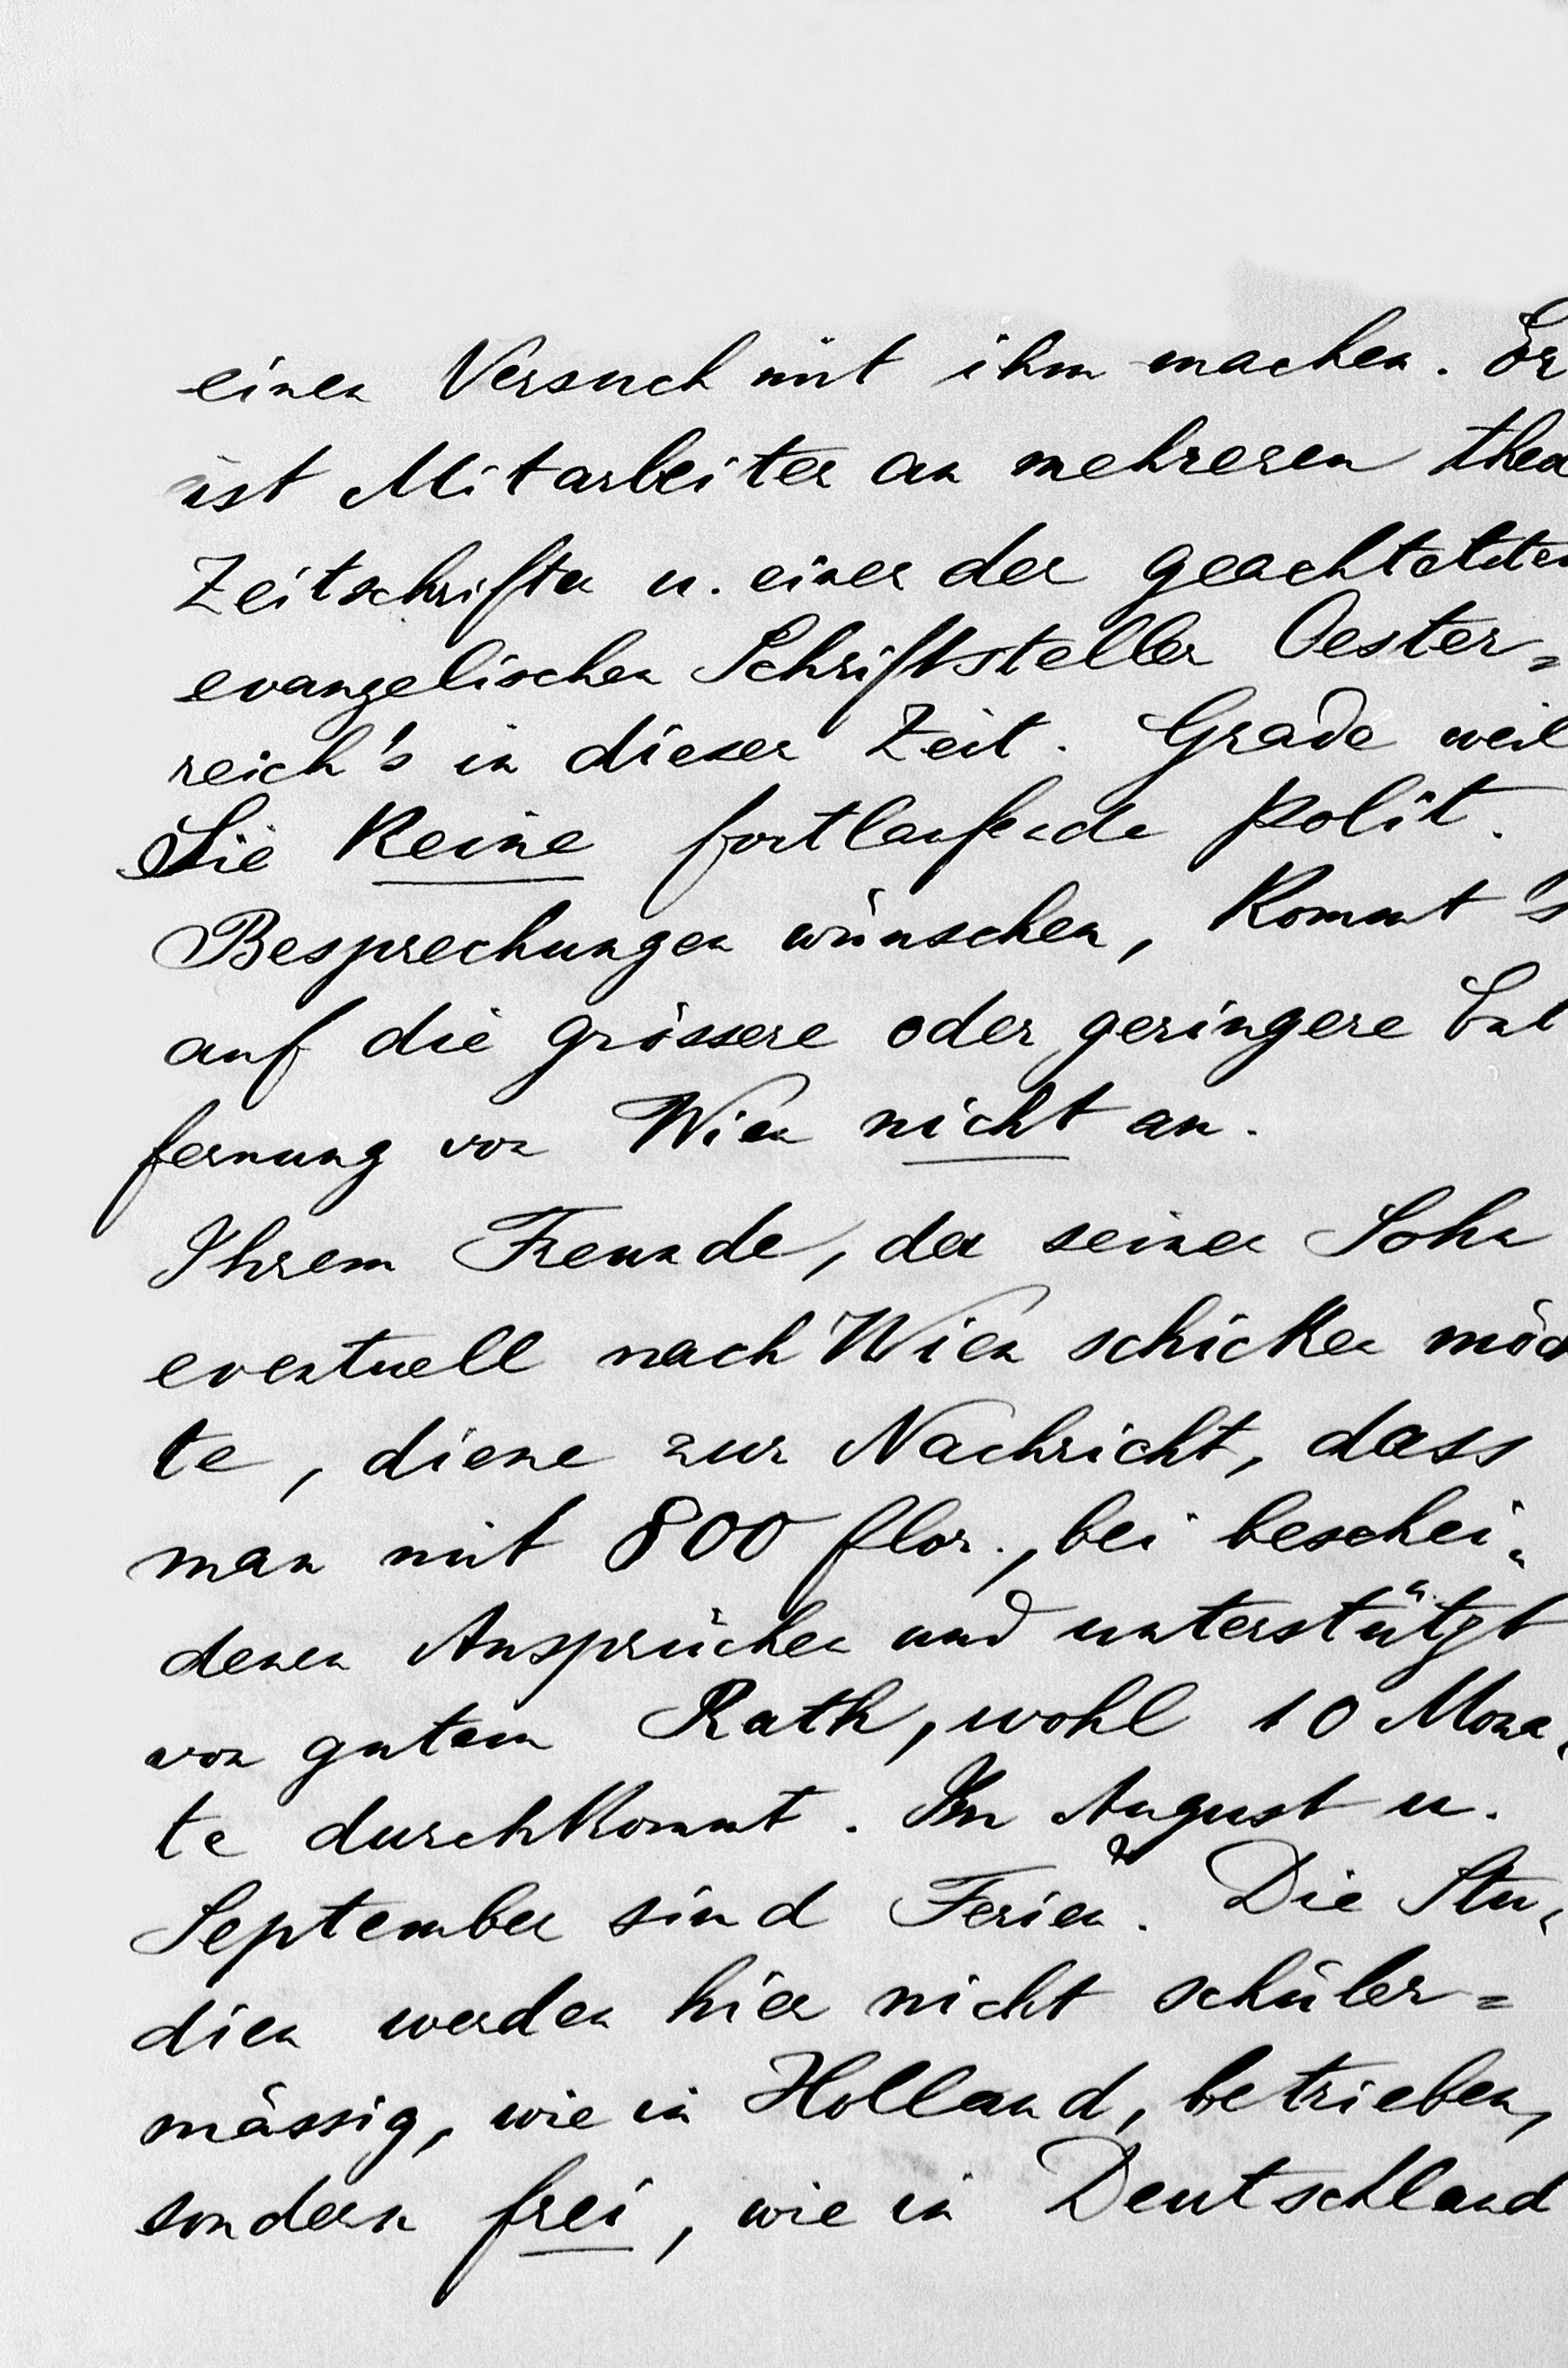 einen Versuch mit ihm machen. Er
ist Mitarbeiter an mehreren theo
Zeitschriften u. einer der geachtetsten
evangelischen Schriftsteller Oester=
reich's in dieser Zeit. Grade weil
Sie keine fortlaufende polit.
Besprechungen wünschen, kommt 's
auf die grössere oder geringere Ent
fernung von Wien nicht an.
Ihrem Freunde, der seinen Sohn
eventuell nach Wien schicken möch
te, diene zur Nachricht, dass
man mit 800 flor., bei beschei-
denen Ansprüchen und unterstützt
von gutem Rath, wohl 10 Mona-
te durchkommt. Im August u.
September sind Ferien. Die Stu-
dien werden hier nicht schüler=
mässig, wie in Holland, betrieben,
sondern frei, wie in Deutschland